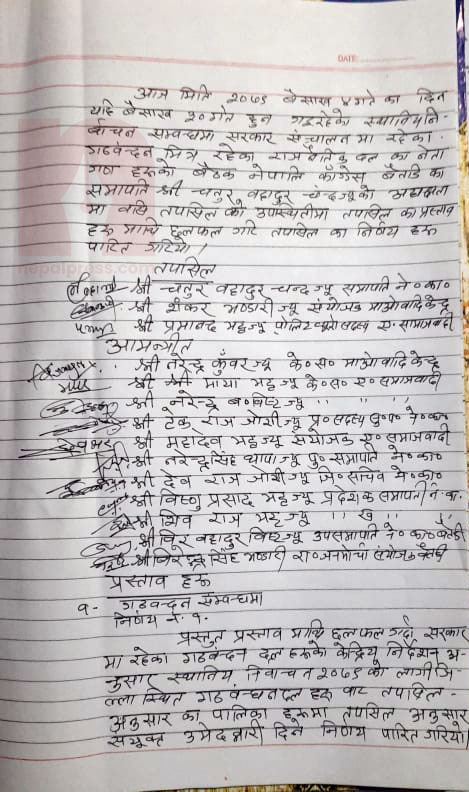 DATE
आज मिति २०७९ बैसाख ४ गते का दिन
यहि बैसाख ३० गते हुन गइरहेको स्थानिय नि-
र्बाचन सम्वन्धमा सरकार संचालन मा रहेका
गठवन्दन मित्र रहेका राजनैतिक दल का नेता
गण हरुको बैठक नेपालि काँग्रेस बैतडि का
सभापति श्री चतुर वहादुर चन्दज्यूको अध्यक्षता
मा वसि तपसिल को उपस्थितीमा तपसिल का प्रस्ताव
हरु माथि छलफल गरि तपसिल का निर्णय हरु
पारित गरियो।
nepalpress.com
तपसिल
श्री चतुर वहादुर चन्द ज्यू सभापति ने॰का॰
श्री शंकर भण्डारी ज्यू संयोजक माओवादि केन्द्र
श्री प्रमानन्द भट्ट ज्यू पोलिटव्यूरो सदस्य ए॰ समाजवादी
आमन्त्रीत
श्री नरेन्द्र कुँवर ज्यू के॰स॰ माओवादि केन्द्र
श्री माया भट्ट ज्यू के॰स॰ ए॰ समाजवादी
श्री नरेन्द्र ब॰ विष्ट ज्यू " " "
श्री टेक राज जोशी ज्यू प्र॰ सदस्य ने॰का॰
श्री महादेव भट्ट ज्यू संयोजक ए॰ समाजवादी
श्री नरेन्द्रसिंह थापा ज्यू पु॰ सभापति ने॰का॰
श्री देव राज जोशी ज्यू जि॰ सचिव ने॰का॰
श्री विष्णु प्रसाद भट्ट ज्यू प्रदेश क सभापती ने॰का॰
श्री शिव राज भट्ट ज्यू " ख " "
श्री विर वहादुर विष्ट ज्यू उपसभापति ने॰का॰ बैतडी
श्री विरेन्द्र सिंह भण्डारी रा॰जनमोर्चा संयोजक बैतडी
प्रस्ताव हरु
१- गठवन्दन सम्वन्धमा
निर्णय नं. १.
प्रस्तुत प्रस्ताव माथि छलफल गर्दा सरकार
मा रहेका गठवन्दन दल हरुको केन्द्रिय निर्देशन अ-
नुसार स्थानिय निवाचन २०७९ को लागी जि-
ल्ला स्थित गठवन्धन दल हरु वाट तपसिल-
अनुसार का पालिका हरुमा तपसिल अनुसार
संयुक्त उमेदवारी दिने निर्णय पारित गरियो।